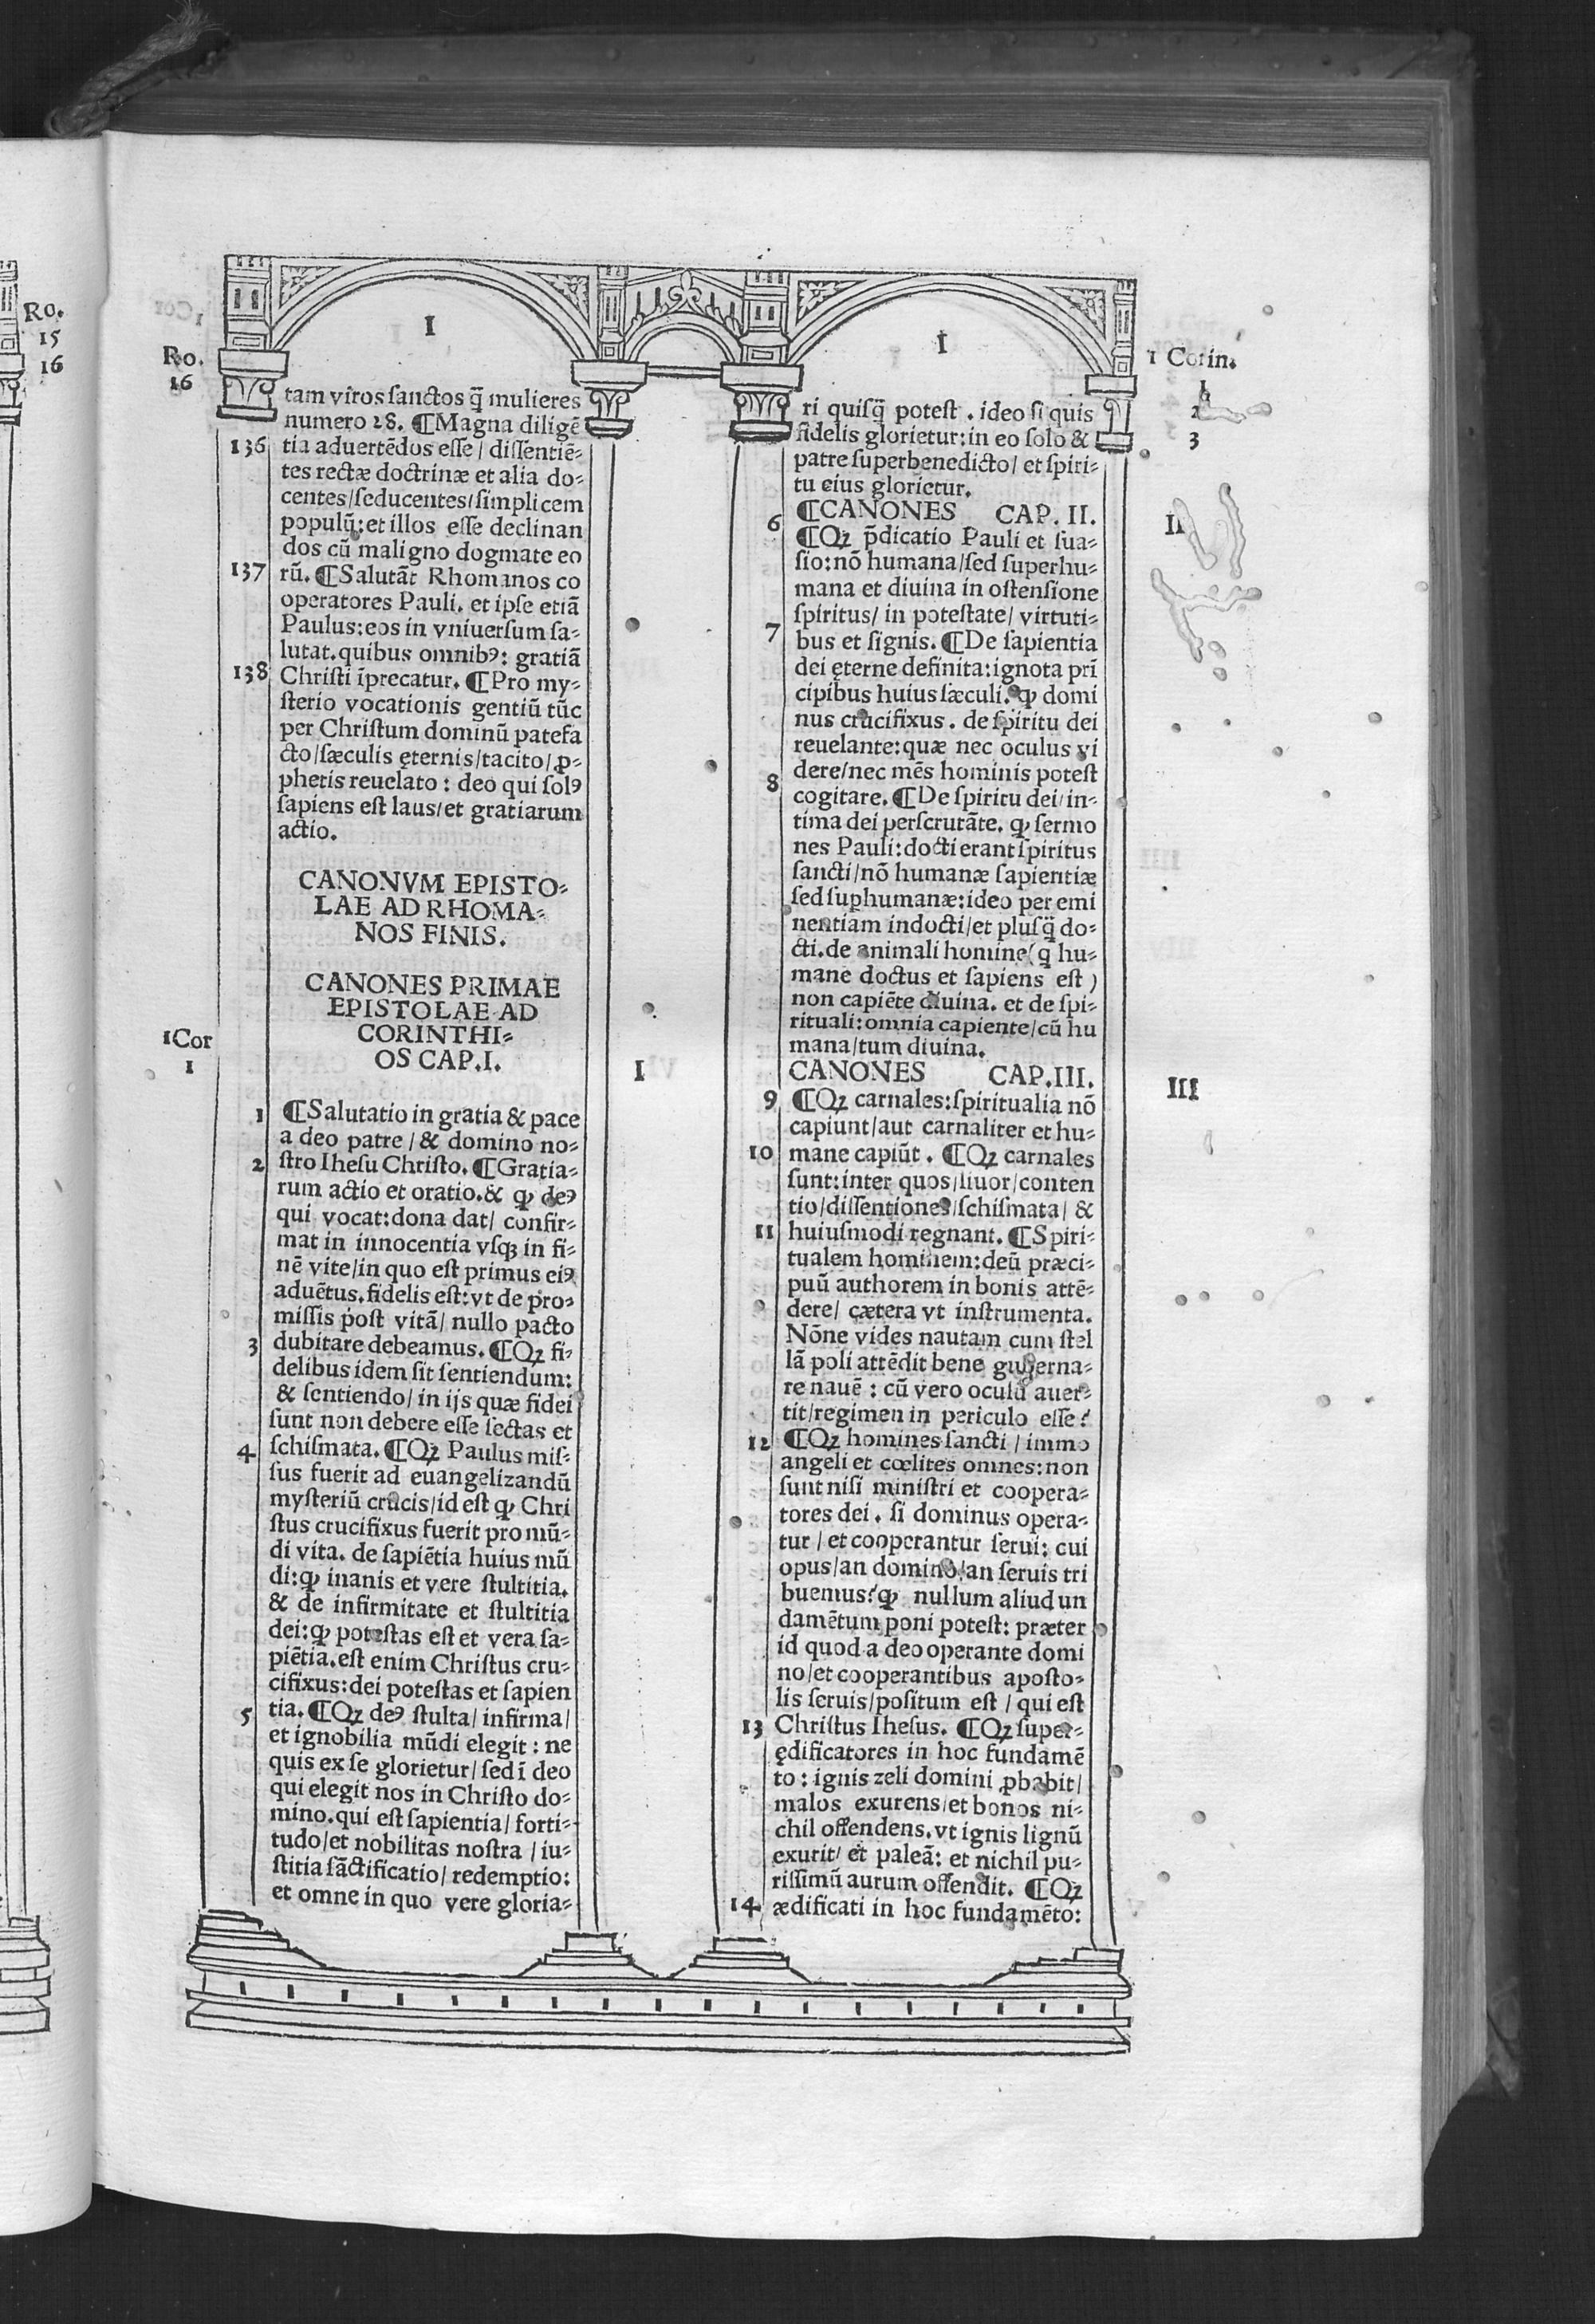 Ro.
15
16
I
Ro.
16
tam viros ſanctos q̃ mulieres
numero 28. ¶Magna diligẽ
136 tia aduertẽdos eſſe / diſſentiẽ⸗
tes rectæ doctrinæ et alia do⸗
centes/ſeducentes/ſimplicem
populũ:et illos eſſe declinan
dos cũ maligno dogmate eo
137 rũ. ¶Salutãt Rhomanos co
operatores Pauli. et ipſe etiã
Paulus:eos in vniuerſum ſa⸗
lutat.quibus omnibꝰ: gratiã
138 Chriſti ĩprecatur. ¶Pro my⸗
ſterio vocationis gentiũ tũc
per Chriſtum dominũ patefa
cto/ſæculis ęternis/tacito/ ꝓ⸗
phetis reuelato : deo qui ſolꝰ
ſapiens eſt laus/et gratiarum
actio.
CANONVM EPISTO⸗
LAE AD RHOMA⸗
NOS FINIS.
CANONES PRIMAE
EPISTOLAE AD
CORINTHI⸗
OS CAP.I.
1Cor
1
I
1 ¶Salutatio in gratia & pace
a deo patre / & domino no⸗
2 ſtro Iheſu Chriſto. ¶Gratia⸗
rum actio et oratio.& ꝙ deꝰ
qui vocat:dona dat/ confir⸗
mat in innocentia vſqꝫ in fi⸗
nẽ vite/in quo eſt primus eiꝰ
aduẽtus.fidelis eſt:vt de pro⸗
miſſis poſt vitã/ nullo pacto
3 dubitare debeamus. ¶Qꝫ fi⸗
delibus idem ſit ſentiendum:
& ſentiendo/ in ijs quæ fidei
ſunt non debere eſſe ſectas et
4 ſchiſmata. ¶Qꝫ Paulus miſ⸗
ſus fuerit ad euangelizandũ
myſteriũ crucis/id eſt ꝙ Chri
ſtus crucifixus fuerit pro mũ⸗
di vita. de ſapiẽtia huius mũ
di:ꝙ inanis et vere ſtultitia.
& de infirmitate et ſtultitia
dei:ꝙ poteſtas eſt et vera ſa⸗
piẽtia.eſt enim Chriſtus cru⸗
cifixus:dei poteſtas et ſapien
5 tia. ¶Qꝫ deꝰ ſtulta/ infirma/
et ignobilia mũdi elegit : ne
quis ex ſe glorietur/ ſed ĩ deo
qui elegit nos in Chriſto do⸗
mino.qui eſt ſapientia/ forti⸗
tudo/et nobilitas noſtra / iu⸗
ſtitia ſãctificatio/ redemptio:
et omne in quo vere gloria⸗
I
1 Corin.
1
2
3
ri quiſq̃ poteſt . ideo ſi quis
fidelis glorietur:in eo ſolo &
patre ſuperbenedicto/ et ſpiri⸗
tu eius glorietur.
¶CANONES CAP. II.
II
6 ¶Qꝫ p̃dicatio Pauli et ſua⸗
ſio:nõ humana/ſed ſuperhu⸗
mana et diuina in oſtenſione
ſpiritus/ in poteſtate/ virtuti⸗
7 bus et ſignis. ¶De ſapientia
dei ęterne definita:ignota prĩ
cipibus huius ſæculi. ꝙ domi
nus crucifixus . de ſpiritu dei
reuelante:quæ nec oculus vi
dere/nec mẽs hominis poteſt
8 cogitare. ¶De ſpiritu dei/ in⸗
tima dei perſcrutãte. ꝙ ſermo
nes Pauli:docti erant ſpiritus
ſancti/nõ humanæ ſapientiæ
ſed ſuphumanæ:ideo per emi
nentiam indocti/et pluſq̃ do⸗
cti.de animali homine(q̃ hu⸗
mane doctus et ſapiens eſt)
non capiẽte diuina. et de ſpi⸗
rituali:omnia capiente/cũ hu
mana/tum diuina.
CANONES CAP.III.
III
9 ¶Qꝫ carnales:ſpiritualia nõ
capiunt/aut carnaliter et hu⸗
10 mane capiũt . ¶Qꝫ carnales
ſunt:inter quos/liuor/conten
tio/diſſentiones/ſchiſmata/ &
11 huiuſmodi regnant. ¶Spiri⸗
tualem hominem:deũ præci⸗
puũ authorem in bonis attẽ⸗
dere/ cætera vt inſtrumenta.
Nõne vides nautam cum ſtel
lã poli attẽdit bene guberna⸗
re nauẽ : cũ vero oculũ auer⸗
tit/regimen in periculo eſſe?
12 ¶Qꝫ homines ſancti / immo
angeli et cœlites omnes:non
ſunt niſi miniſtri et coopera⸗
tores dei . ſi dominus opera⸗
tur / et cooperantur ſerui: cui
opus/an domino/an ſeruis tri
buemus?ꝙ nullum aliud un
damẽtum poni poteſt: præter
id quod a deo operante domi
no/et cooperantibus apoſto⸗
lis ſeruis/poſitum eſt / qui eſt
13 Chriſtus Iheſus. ¶Qꝫ ſuper⸗
ędificatores in hoc fundamẽ
to : ignis zeli domini ꝓbabit/
malos exurens/et bonos ni⸗
chil offendens.vt ignis lignũ
exurit/ et paleã: et nichil pu⸗
riſſimũ aurum offendit. ¶Qꝫ
14 ædificati in hoc fundamẽto: